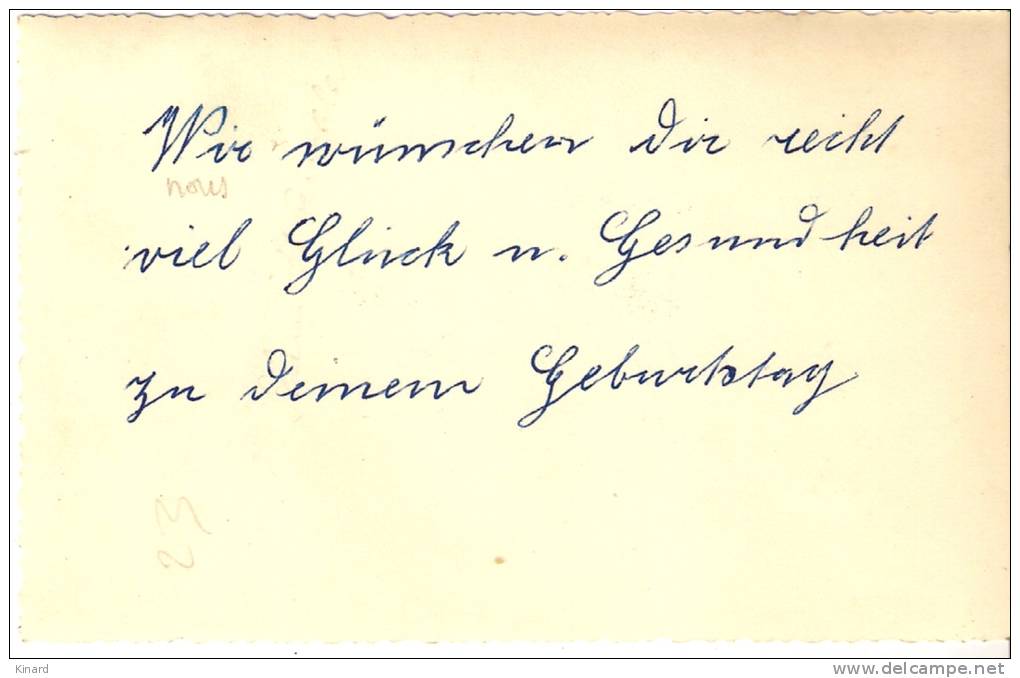 Wir wünschen dir recht
nous
viel Glück u. Gesundheit
zu deinem Geburtstag
23
Kinard
www.delcampe.net